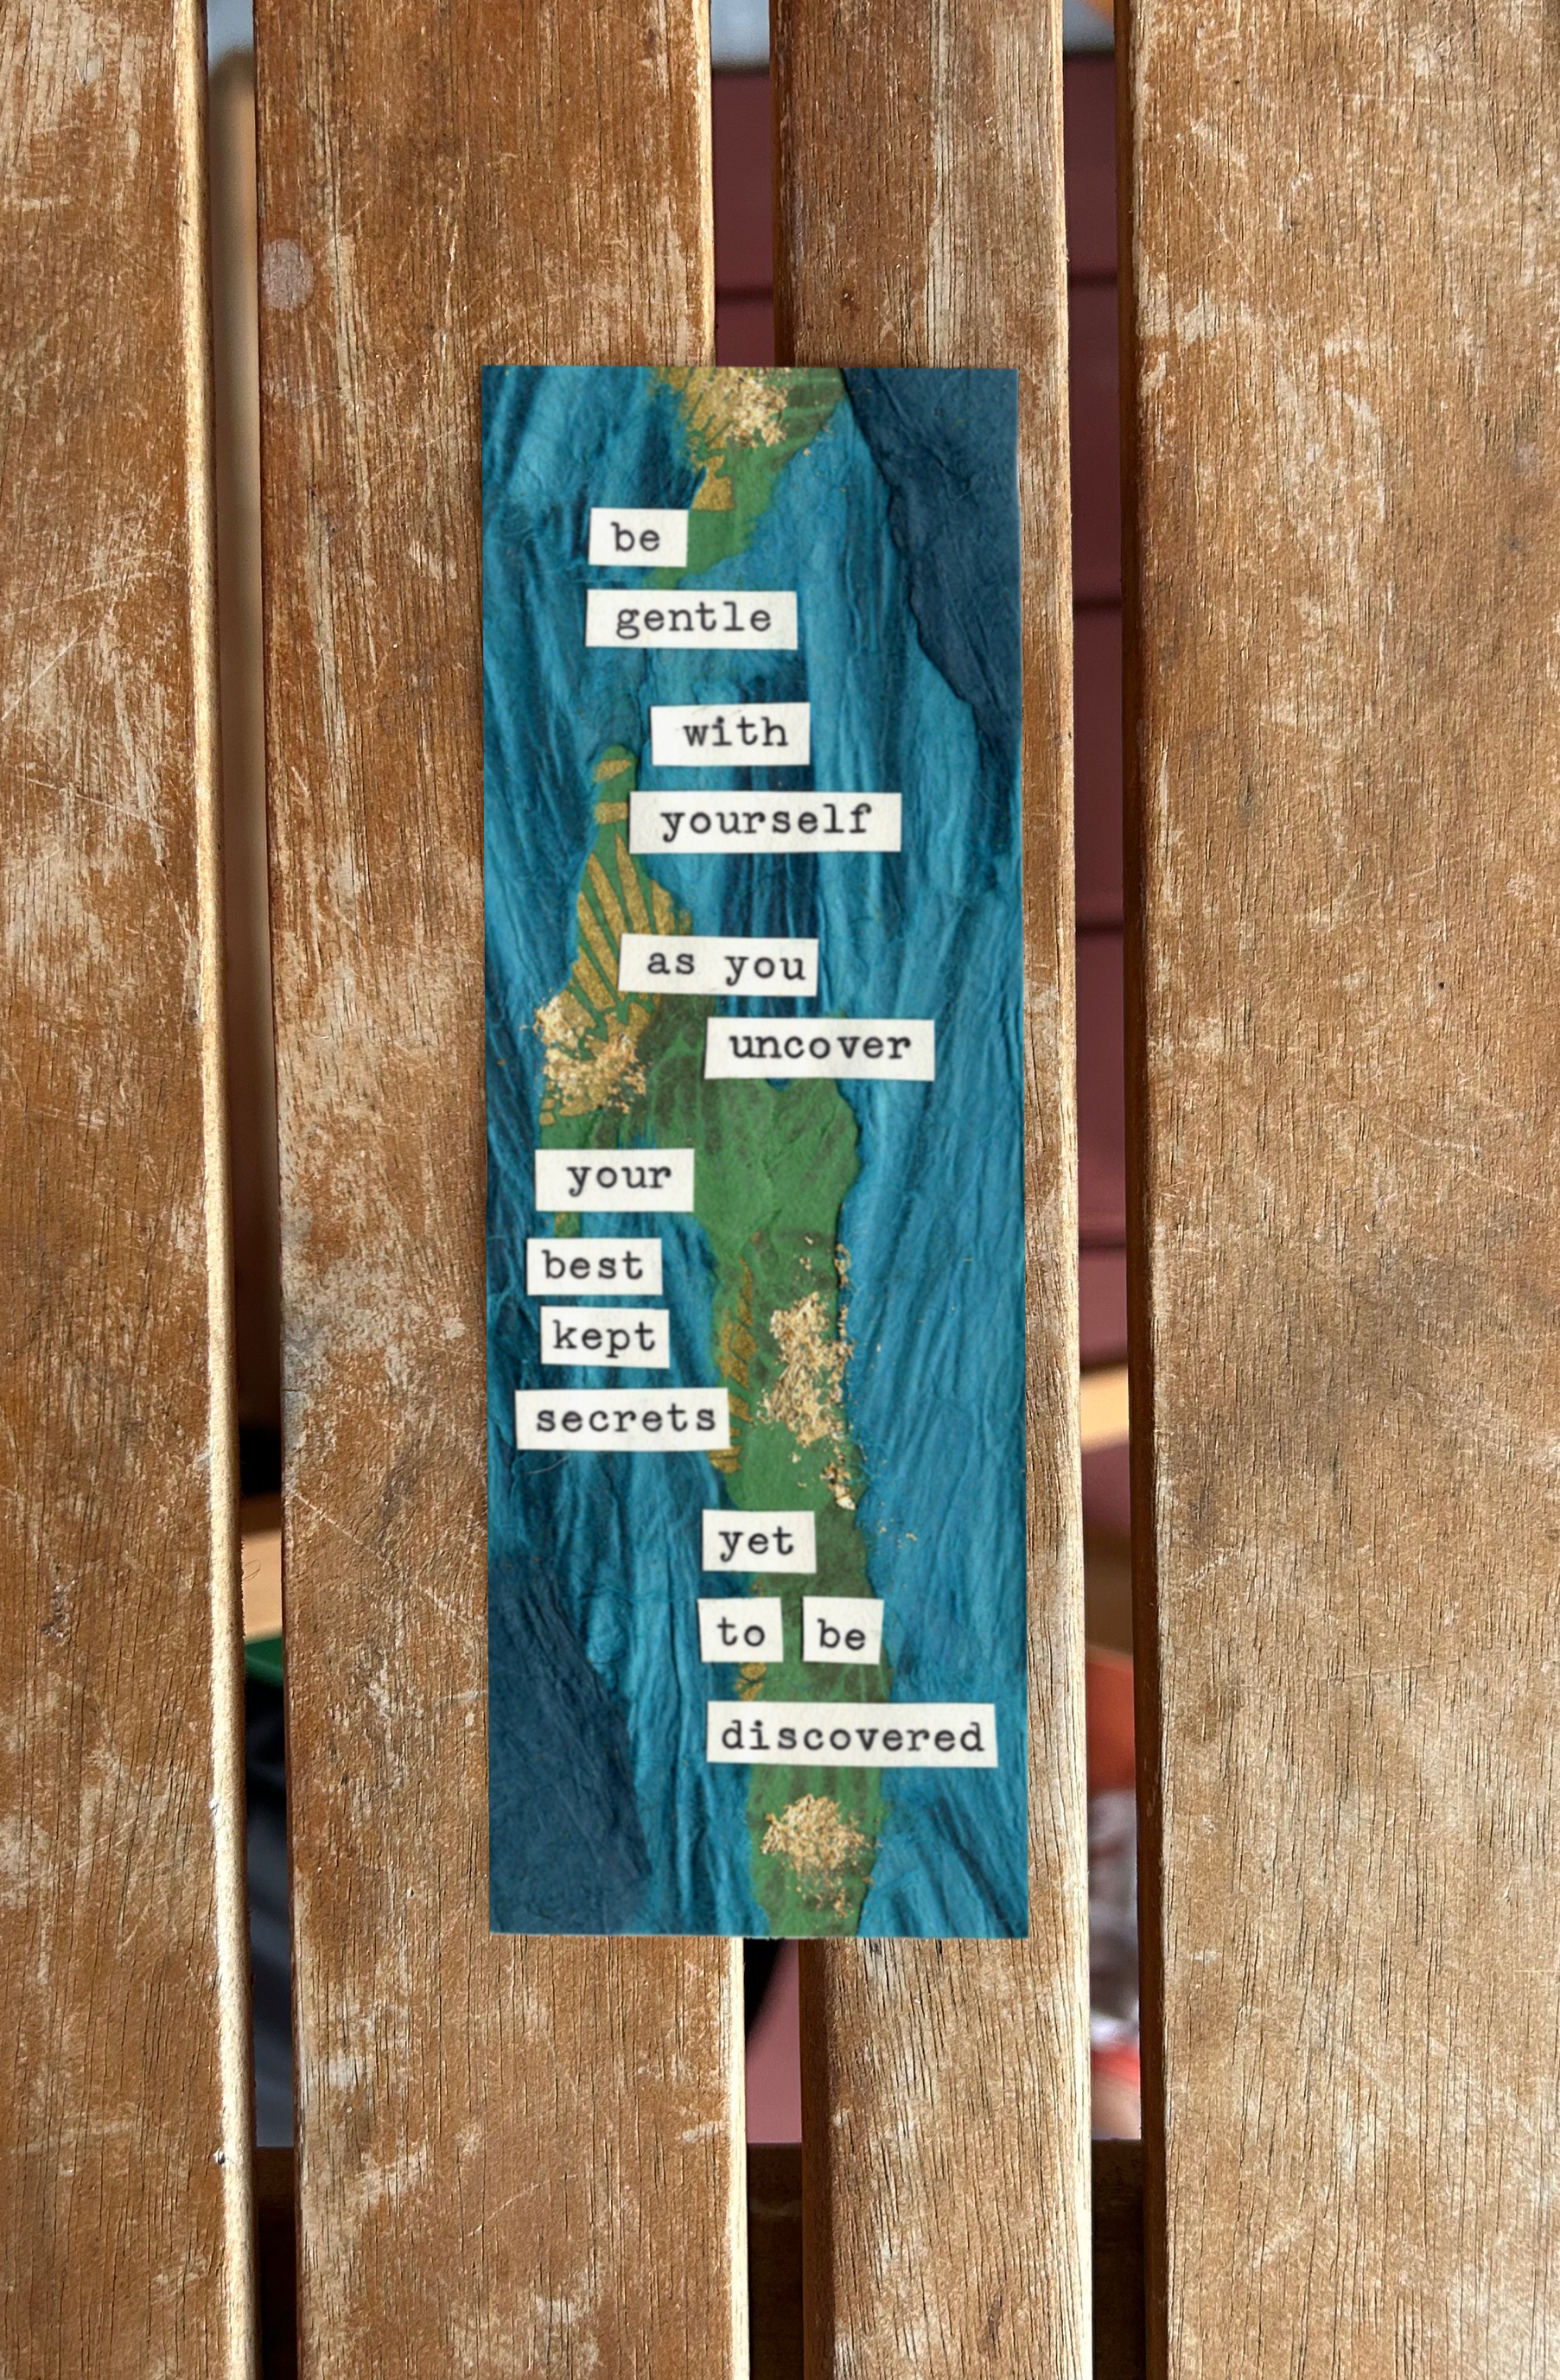 be
gentle
with
yourself
as you
uncover
your
best
kept
secrets
yet
to be
discovered